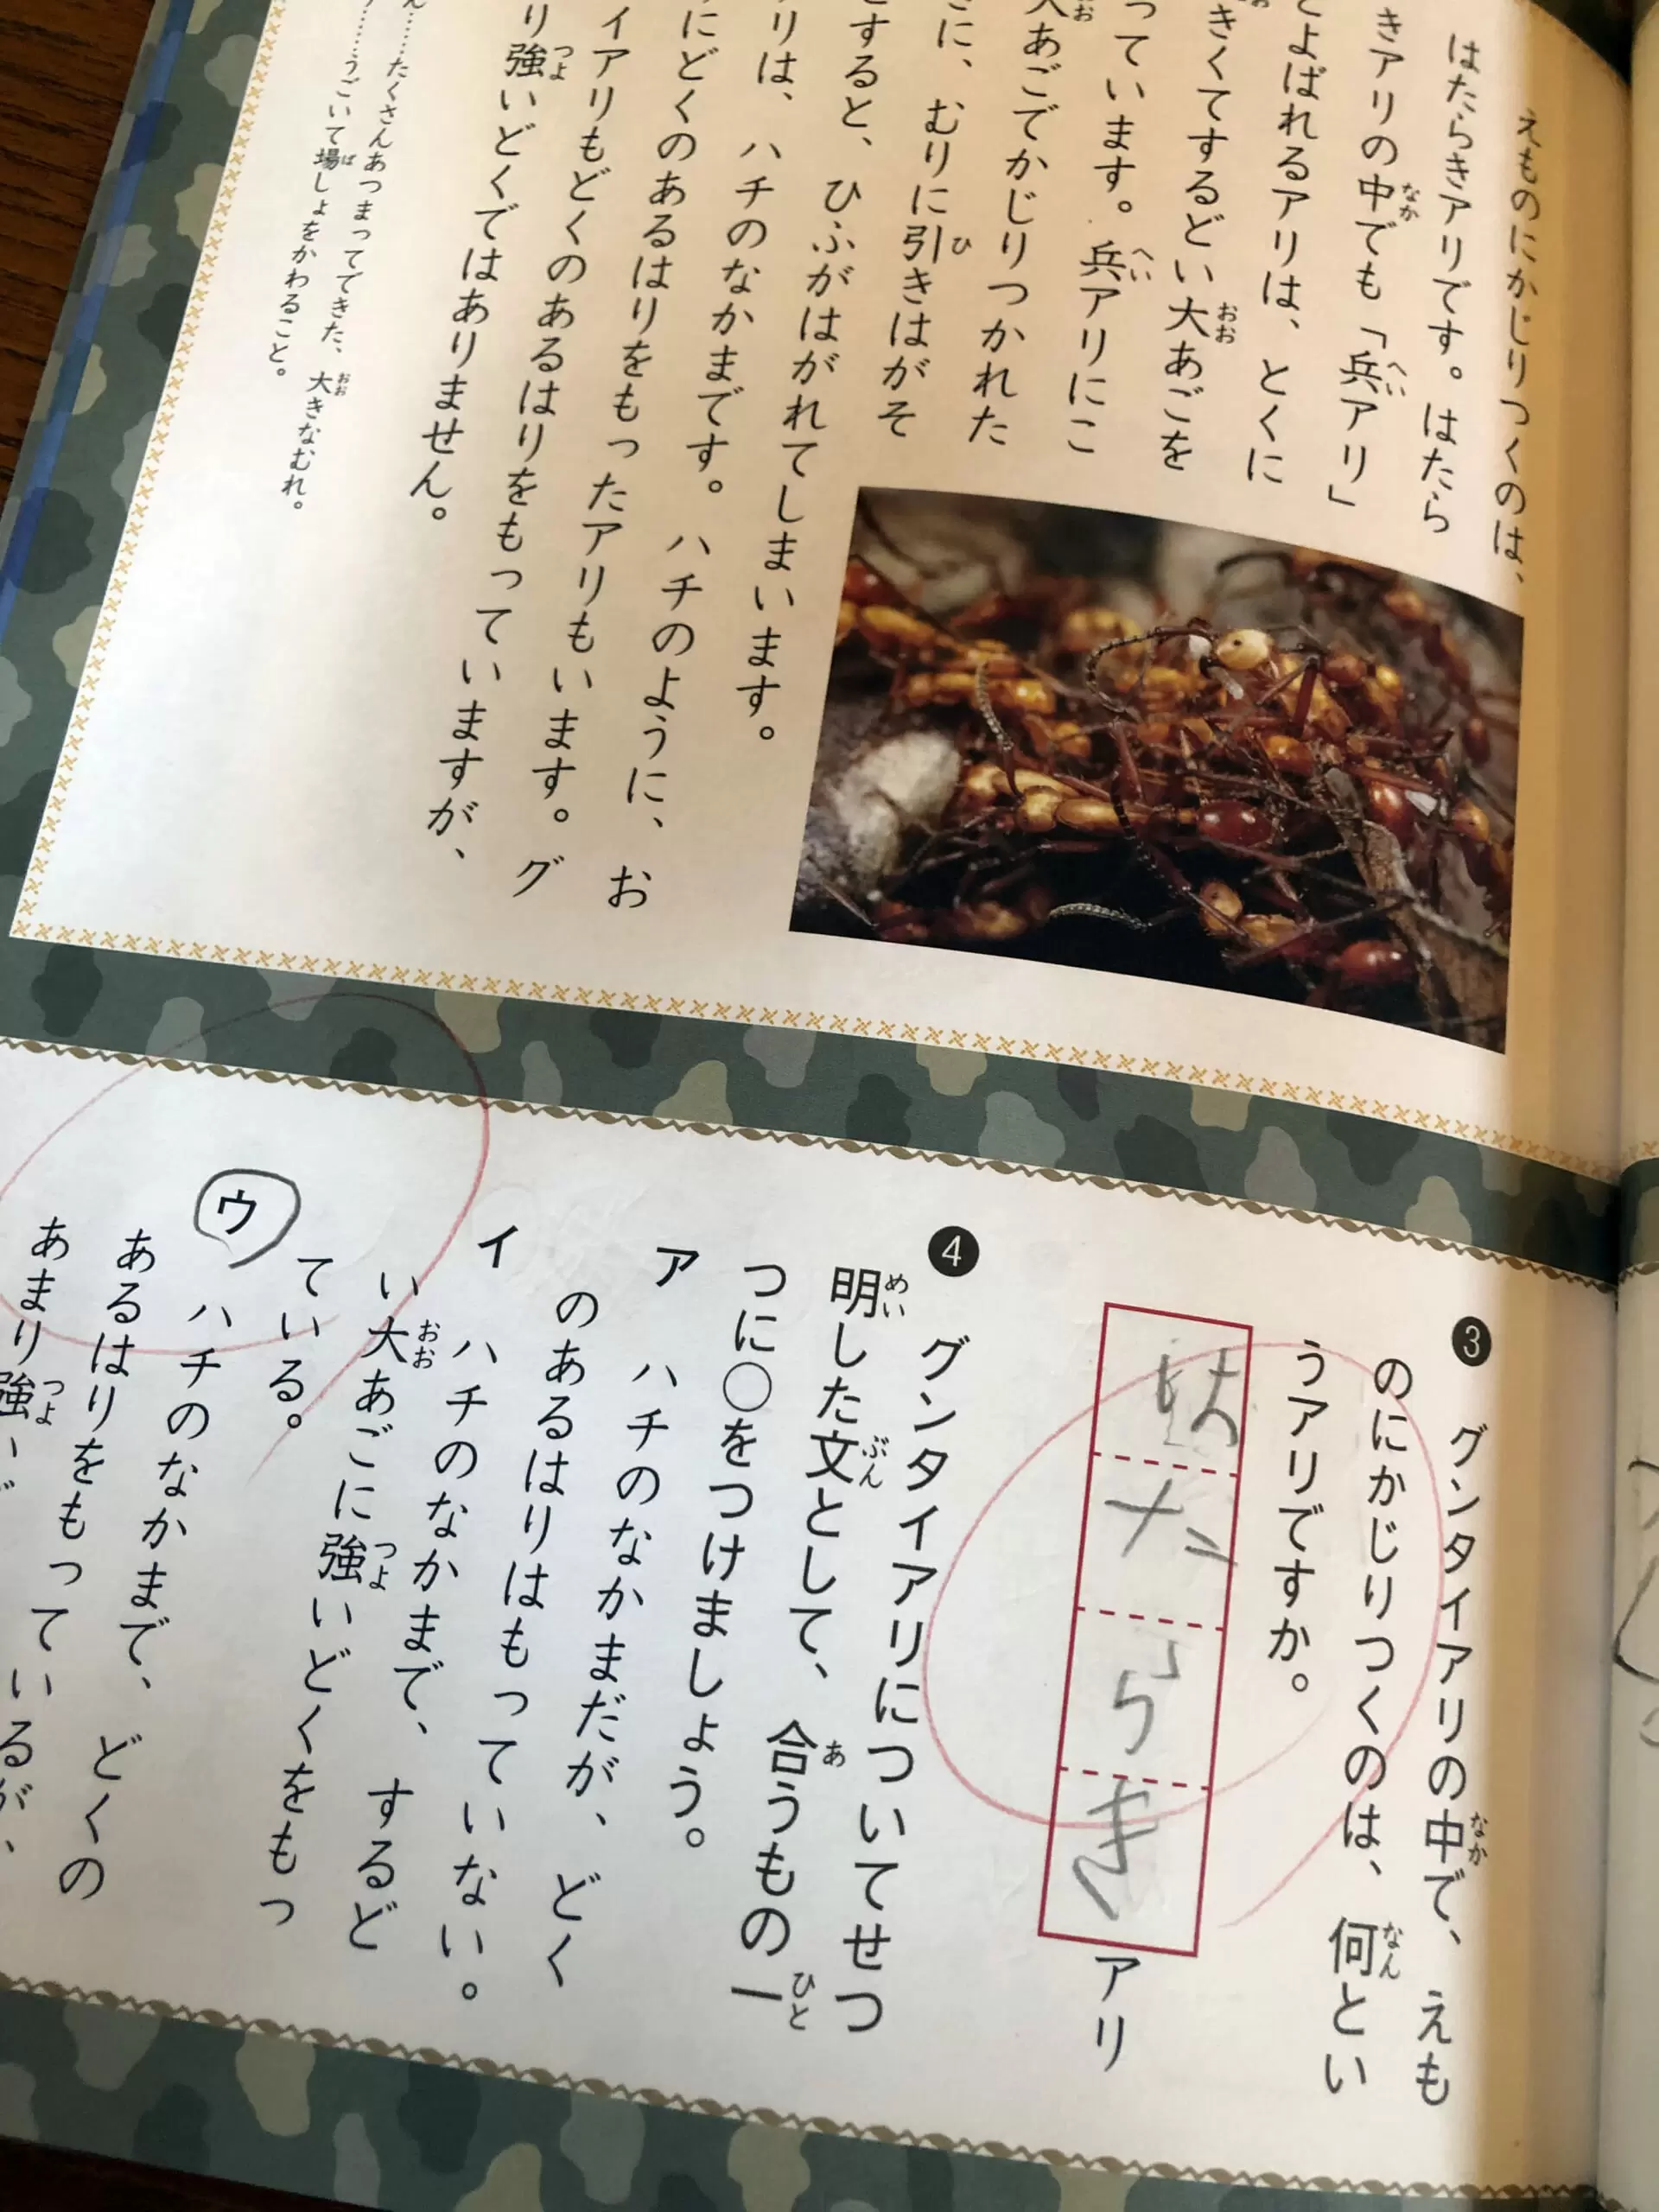 えものにかじりつくのは、
はたらきアリです。はたら
きアリの中でも「兵アリ」
とよばれるアリは、とくに
きくてするどい大あごを
っています。兵アリにこ
大あごでかじりつかれた
に、むりに引きはがそ
すると、ひふがはがれてしまいます。
リは、ハチのなかまです。ハチのように、お
にどくのあるはりをもったアリもいます。グ
イアリもどくのあるはりをもっていますが、
り強いどくではありません。
ん……たくさんあつまってできた、大きなむれ。
……うごいて場しょをかわること。
❸ グンタイアリの中で、えも
のにかじりつくのは、何とい
うアリですか。
はたらきアリ
❹ グンタイアリについてせつ
明した文として、合うもの一
つに○をつけましょう。
ア ハチのなかまだが、どく
のあるはりはもっていない。
イ ハチのなかまで、するど
い大あごに強いどくをもっ
ている。
ウ ハチのなかまで、どくの
あるはりをもっているが、
あまり強い